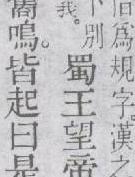 旧為規字。漢之
下別
我。
蜀王望帝
鳴。皆起曰是